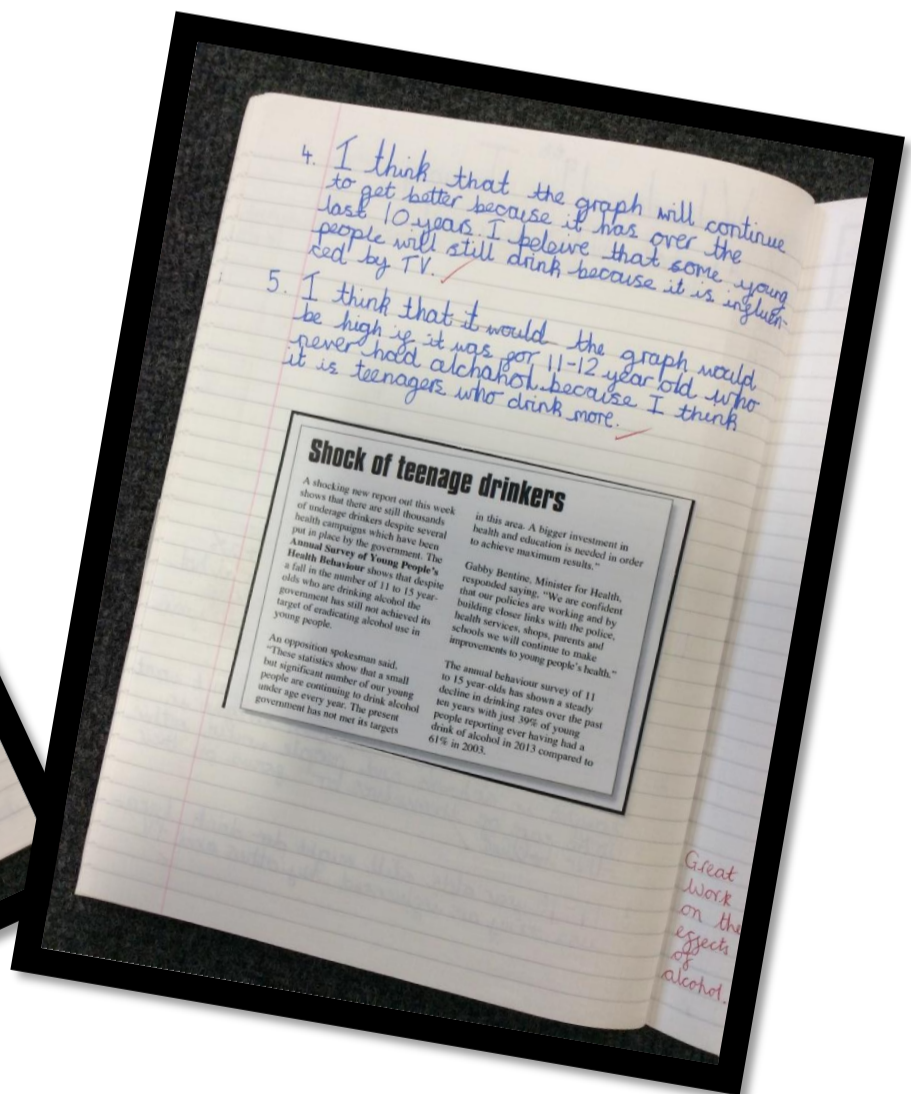 4. I think that the graph will continue
to get better because it has over the
last 10 years. I beleive that some young
people will still drink because it is influen-
ced by TV.
5. I think that it would the graph would
be high if it was for 11-12 year old who
never had alchahol because I think
it is teenagers who drink more.
Shock of teenage drinkers
A shocking new report out this week
shows that there are still thousands
of underage drinkers despite several
health campaigns which have been
put in place by the government. The
Annual Survey of Young People's
Health Behaviour shows that despite
a fall in the number of 11 to 15 year-
olds who are drinking alcohol the
government has still not achieved its
target of eradicating alcohol use in
young people.
An opposition spokesman said,
"These statistics show that a small
but significant number of our young
people are continuing to drink alcohol
under age every year. The present
government has not met its targets
in this area. A bigger investment in
health and education is needed in order
to achieve maximum results."
Gabby Bentine, Minister for Health,
responded saying, "We are confident
that our policies are working and by
building closer links with the police,
health services, shops, parents and
schools we will continue to make
improvements to young people's health."
The annual behaviour survey of 11
to 15 year-olds has shown a steady
decline in drinking rates over the past
ten years with just 39% of young
people reporting ever having had a
drink of alcohol in 2013 compared to
61% in 2003.
Great
work
on the
effects
of
alcohol.